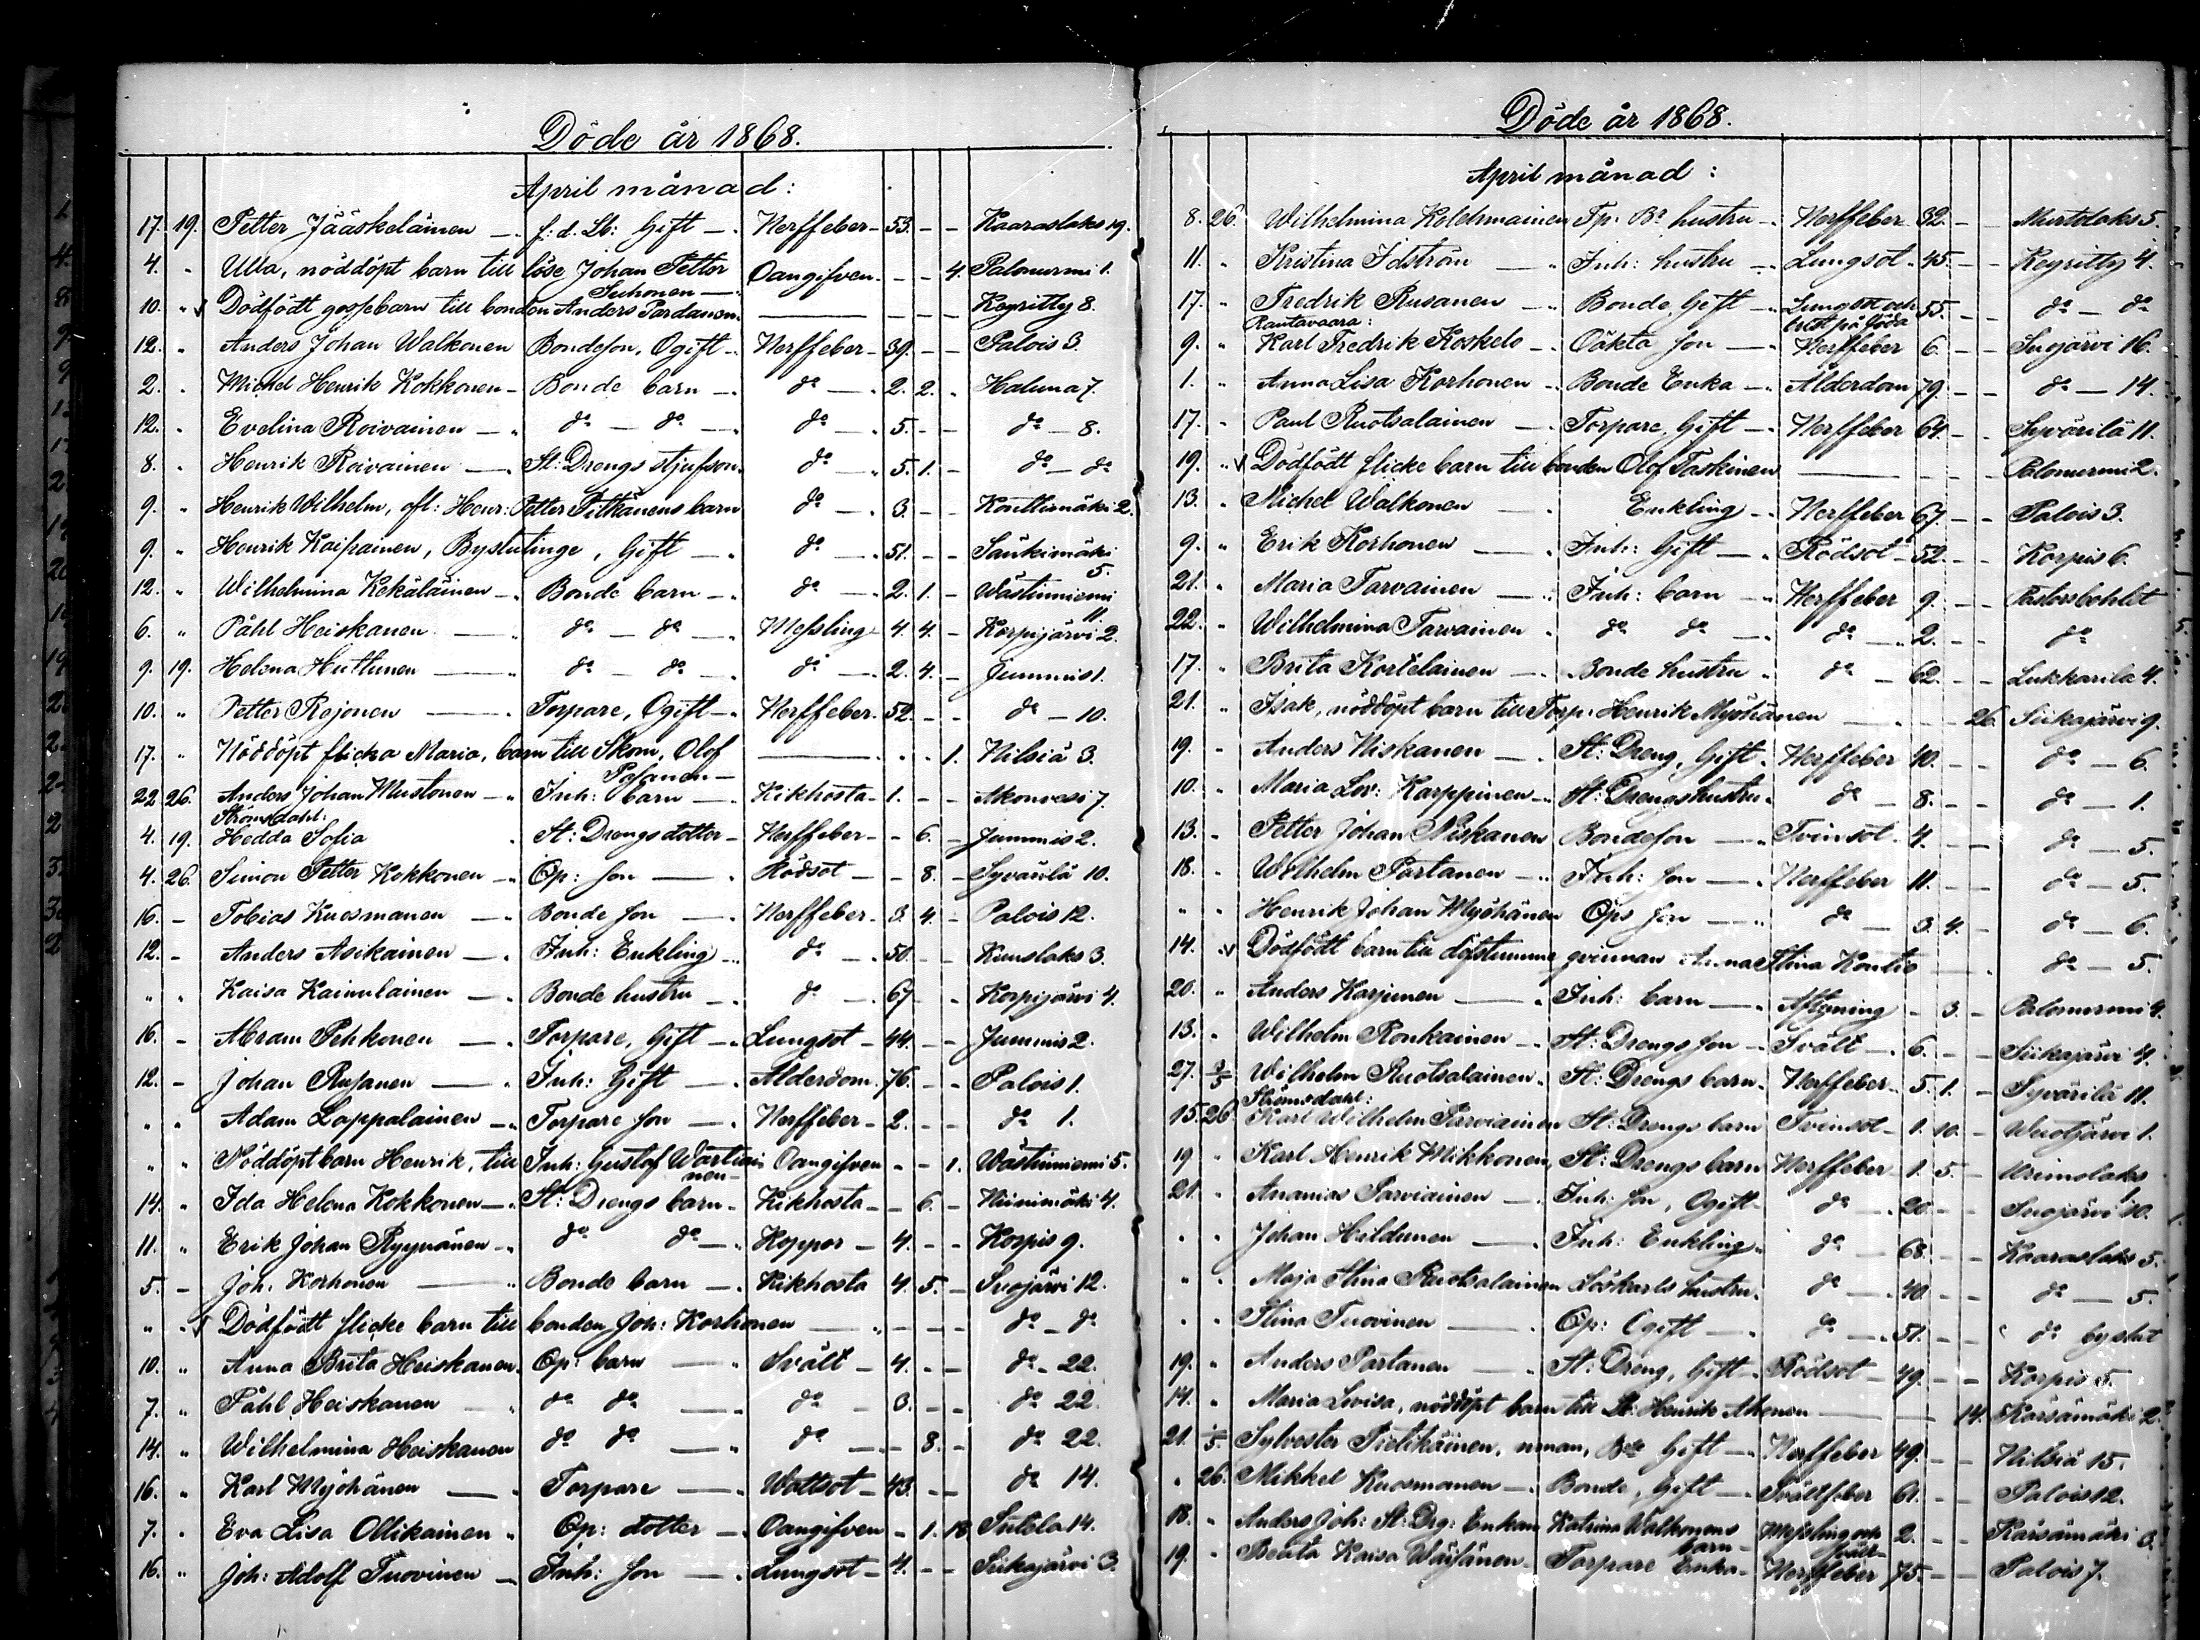 Döde år 1868.
April månad:
17. 19. Petter Jääskeläinen — f: d. Lb: Gift — Nerffeber — 53. — — Kaaraslaks 19.
4. „ Ulla, nöddöpt barn till löse Johan Petter Suhonen — Oangifven — — 4. Palonurmi 1.
10. „ v Dödfödt gossebarn till bonden Anders Pardanen — — — — Keyritty 8.
12. „ Anders Johan Walkonen Bondeson, Ogift — Nerffeber — 39. — — Palois 3.
2. „ Michel Henrik Kokkonen — Bonde barn — do — 2. 2. „ Haluna 7.
12. „ Evelina Roivainen — do — do — do — 5. — — do — 8.
8. „ Henrik Roivainen — St: Drengs stjufson do — 5. 1. — do — do
9. „ Henrik Wilhelm, afl: Henr: Petter Pitkänens barn do — 3. — — Konttimäki 2.
9. „ Henrik Kaipainen, Byslutinge, Gift — do — 51. — — Sänkimäki 5.
12. „ Wilhelmina Kekäläinen — Bonde barn — do — 2. 1. — Wästinniemi 11.
6. „ Påhl Heiskanen — do — do — Messling 4. 4. — Korpijärvi 2.
9. 19. Helena Huttunen — do — do — do — 2. 4. — Jummis 1.
10. „ Petter Rejonen — Torpare, Ogift — Nerffeber. 52. — — do — 10.
17. „ Nöddöpt flicka Maria, barn till Skom. Olof Pasanen — — — — 1. Nilsiä 3.
22. 26. Anders Johan Mustonen — Inh: barn — Kikhosta — 1. — — Akonvesi 7.
Strömsdahl:
4. 19. Hedda Sofia St: Drengs dotter — Nerffeber — — 6. — Jummis 2.
4. 26. Simon Petter Kokkonen — Op: son — Rödsot — — 8. — Syvärilä 10.
16. — Tobias Kuosmanen — Bonde son — Nerffeber — 3. 4. — Palois 12.
12. — Anders Asikainen — Inh: Enkling — do — 50. — — Kuuslaks 3.
„ „ Kaisa Kainulainen — Bonde hustru — do — 67. — — Korpijärvi 4.
16. — Abram Pehkonen — Torpare, Gift — Lungsot — 44. — — Jummis 2.
12. — Johan Rusanen — Inh: Gift — Ålderdom. 76. — — Palois 1.
„ „ Adam Lappalainen — Torpare son — Nerffeber — 2. — — do 1.
„ „ Nöddöpt barn Henrik, till Inh: Gustof Wartiainen — Oangifven — — 1. Wästinniemi 5.
14. „ Ida Helena Kokkonen — St: Drengs barn — Kikhosta — — 6. — Niinimäki 4.
11. „ Erik Johan Ryynänen — do do — Koppor — 4. — — Korpis 9.
5. — Joh. Korhonen — Bonde barn — Kikhosta 4. 5. — Suojärvi 12.
„ „ v Dödfödt flicke barn till bonden Joh: Korhonen — — — — do — do
10. „ Anna Brita Heiskanen. Op: barn — Svält — 4. — — do — 22.
7. „ Påhl Heiskanen do do — do — 3. — — do 22.
14. „ Wilhelmina Heiskanen do do — do — — 8. — do 22.
16. „ Karl Myöhänen — Torpare — Wattsot — 43. — — do 14.
7. „ Eva Lisa Ollikainen „ Op: dotter — Oangifven — 1. 18. Sutela 14.
16. „ Joh: Adolf Tuovinen — Inh: son — Lungsot — 4. — — Siikajärvi 3.
Döde år 1868.
April månad:
8. 26. Wilhelmina Kolehmainen Tp. Bs hustru — Nerffeber 32. — — Murtolaks 5.
11. „ Kristina Idström — Inh: hustru — Lungsot — 45. — — Keyritty 4.
17. „ Fredrik Rusanen — Bonde, Gift — Lungsot och brist på föda 55. — — do — do
Rautavaara:
9. „ Karl Fredrik Koskelo — Oäkta son — Nerffeber 6. — — Suojärvi 16.
1. „ Anna Lisa Korhonen — Bonde Enka — Ålderdom 79. — — do — 14.
17. „ Paul Ruotsalainen — Torpare, Gift — Nerffeber 64. — — Syvärilä 11.
19. „ v Dödfödt flicke barn till bonden Olof Taskinen — — — — Palonurmi 2.
13. „ Michel Walkonen — Enkling — Nerffeber 67. — — Palois 3.
9. „ Erik Korhonen — Inh: Gift — Rödsot — 52. — — Korpis 6.
21. „ Maria Tarvainen — Inh: barn — Nerffeber 9. — — Pastorsbohlet
22. „ Wilhelmina Tarvainen „ do do — do — 2. — — do
17. „ Brita Kortelainen — Bonde hustru „ do — 62. — — Lukkarila 4.
21. „ Isak, nöddöpt barn till Torp: Henrik Myöhänen — — — 26. Siikajärvi 9.
19. „ Anders Niskanen — St: Dreng, Gift. Nerffeber 40. — — do — 6.
10. „ Maria Lov: Karppinen — St: Drengs hustru. do — 8. — — do — 1.
13. „ Petter Johan Niskanen Bondeson — Tvinsot. 4. — — do — 5.
18. „ Wilhelm Partanen — Inh: son — Nerffeber 11. — — do — 5.
„ „ Henrik Johan Myöhänen Ops son — do — 3. 4. — do — 6.
14. „ v Dödfödt barn till döfstumma qvinnan Anna Stina Kontio — — — do — 5.
20. „ Anders Karjunen — Inh: barn — Aftyning — 3. — Palonurmi 4.
13. „ Wilhelm Ronkainen — St: Drengs son — Svält — 6. — — Siikajärvi 4.
27. 3/5 Wilhelm Ruotsalainen. St: Drengs barn. Nerffeber — 5. 1. — Syvärilä 11.
Strömsdahl:
15. 26. Karl Wilhelm Parviainen St: Drengs barn Tvinsot — 1. 10. — Wuotjärvi 1.
19 „ Karl Henrik Mikkonen, St: Drengs barn Nerffeber 1. 5. — Urimolaks 1.
21. „ Ananias Parviainen — Inh: son, Ogift — do — 20. — — Suojärvi 10.
„ „ Johan Hildunen — Inh: Enkling. do — 68. — — Kaaraslaks 5.
„ „ Maja Stina Ruotsalainen Löskarls hustru. do — 40. — — do — 5.
„ „ Stina Tuovinen — Op: Ogift — do — 51. — — do byslut
19. „ Anders Partanen — St: Dreng, Gift — Rödsot — 49. — — Korpis 5.
14. „ Maria Lovisa, nöddöpt barn till Lb: Henrik Ahonen — — — 14. Karsämäki 2.
21. 1/5. Sylvester Pietikäinen, nman, Bde Gift — Nerffeber 49. — — Nilsiä 15.
„ 26. Mikkel Kuosmanen — Bonde, Gift — Svältfeber 61. — — Palois 12.
18. „ Anders Joh: St: Drg: Enkan Katrina Walkonens barn — Messling och svält — 2. — — Karsämäki 3.
19. „ Beata Kaisa Wäisänen — Torpare Enka — Nerffeber 75. — — Palois 7.